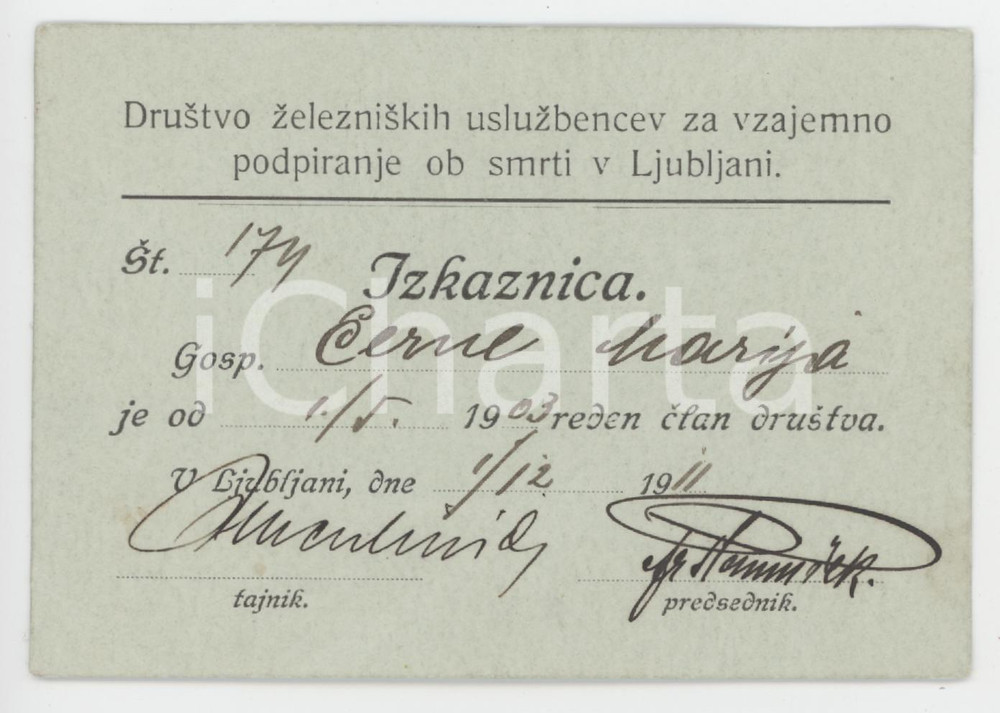 Društvo železniških uslužbencev za vzajemno
podpiranje ob smrti v Ljubljani.
Št. 174
Izkaznica.
iCharta
Gosp. Černe Marija
je od 1./5. 1903 reden član društva.
V Ljubljani, dne 1/12 1911
tajnik.
predsednik.